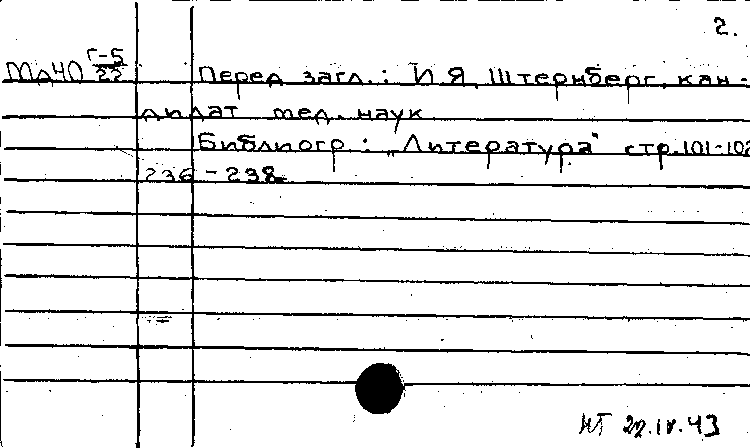 2.
Мд40 Г-5/22 Перед загл.: И Я. Штернберг, кан-
дидат мед. наук
Библиогр: „Литература" стр.101-102
236-238
НТ 22.IV.43